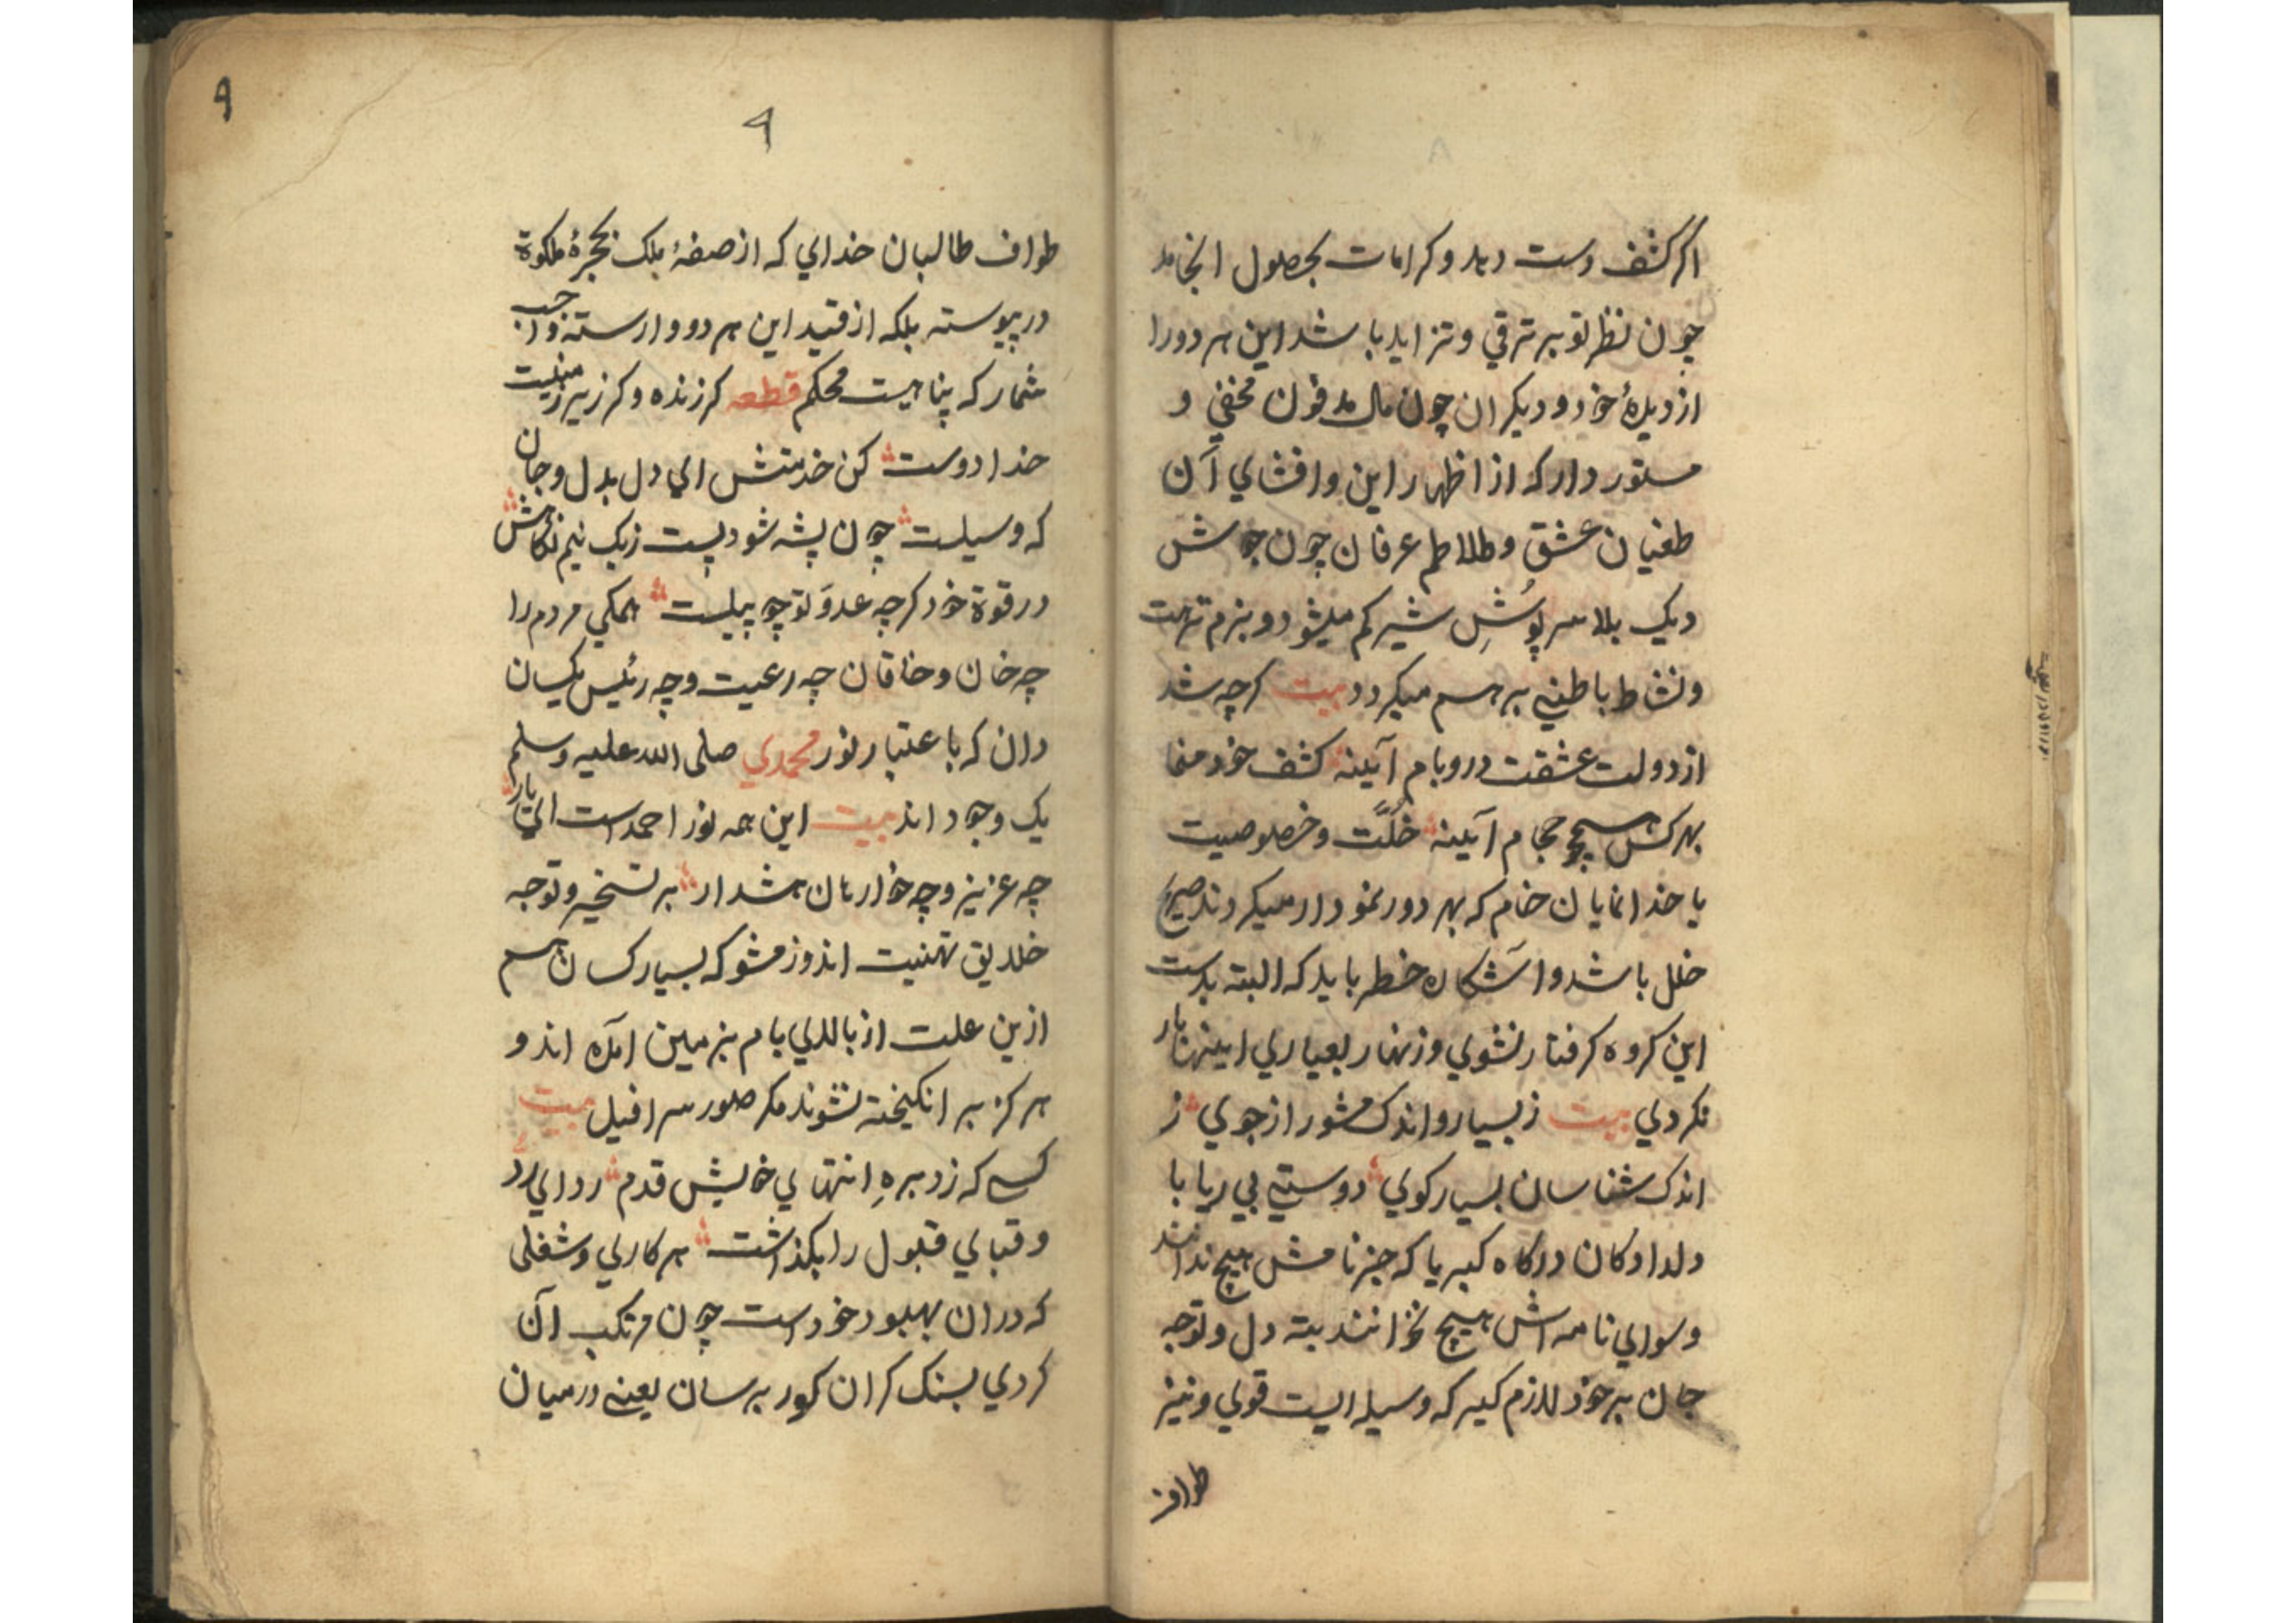 اگر کشف دست دهد و کرامات بحصول انجامد
چون نظر تو بر ترقی و تزاید باشد این هر دو را
از دیدهٔ خود و دیگران چون مال مدفون مخفی و
مستور دار که از اظهار این و افشای آن
طغیان عشق و طلاطم عرفان چون جوش
دیک بلا سرپُوشِ شیر کم میشود و بزم نزهت
و نشاط باطنی برهم میگردد بیت گرچه شد
از دولت عشقت در و بام آیینه کشف خود منما
بهر کس همچو حجام آیینه خُلَّت و خصوصیت
با خدانمایان خام که بهر دور نمودار میگردند صریح
خلل باشد و آشکاره خطر باید که البته بدست
این گروه گرفتار نشوی و زنهار بعیاری اینها یار
نگردی بیت ز بسیار و اندک مشو راز جوی ز
اندک شناسان بسیار گوی دوستی بی ریا با
دلدادگان درگاه کبریا که جز نامش هیچ ندانند
و سوای نامه اش هیچ نخوانند بته دل و توجه
جان بر خود لازم گیر که وسیله ایست قوی و نیز
طواف
٩
٩
طواف طالبان خدای که از صفهٔ ملک بحجرهٔ ملکوة
در پیوسته بلکه از قید این هر دو وارسته واجب
شمار که پناهیست محکم قطعه گر زنده و گر زیر زمینیست
خدا دوست کن خدمتش ای دل بدل و جان
که وسیلست چون پشه شود پست ز یک نیم نگاهش
در قوة خود گرچه عدوَ تو چو پیلیست همگی مردم را
چه خان و خاقان چه رعیت و چه رئیس یکسان
دان که باعتبار نور محمدی صلی الله علیه وسلم
یک وجود اند بیت این همه نور احمد است ای یار
چه عزیز و چه خوار هان هشدار بر تسخیر و توجه
خلایق تهنیت اندوز مشو که بسیار کسان هم
ازین علت از بالای بام بزمین آمده اند و
هرگز بر انگیخته نشوند مگر صور سرافیل بیت
کسی که زد برهِ انتهای خویش قدم ردای رد
و قبای قبول را بگذاشت هر کاری و شغلی
که دران بهبود خود است چون مرتکب آن
گردی بسنگ گران گور برسان یعنی در میان